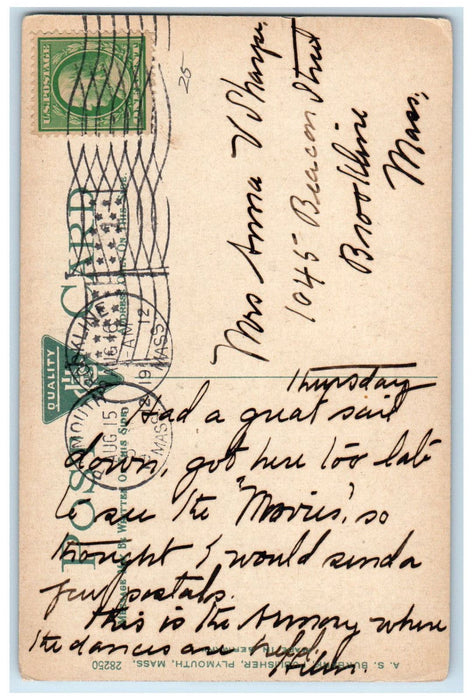 25
U.S. POSTAGE
ONE CENT
POST CARD
ADDRESS ONLY ON THIS SIDE.
MESSAGE MAY BE WRITTEN ON THIS SIDE
QUALITY
BROOKLINE
AUG 16
AM
1912
MASS.
PLYMOUTH
AUG 15
MASS
Mrs Anna V Sharpe,
1045 Beacon Street
Brookline
Mass.
Thursday
Had a great sail
down, got here too late
to see the "Movies", so
thought I would send a
few postals.
This is the Armory where
the dances are held.
Helen.
A. S. BURBANK, PUBLISHER, PLYMOUTH, MASS.
MADE IN GERMANY
28250